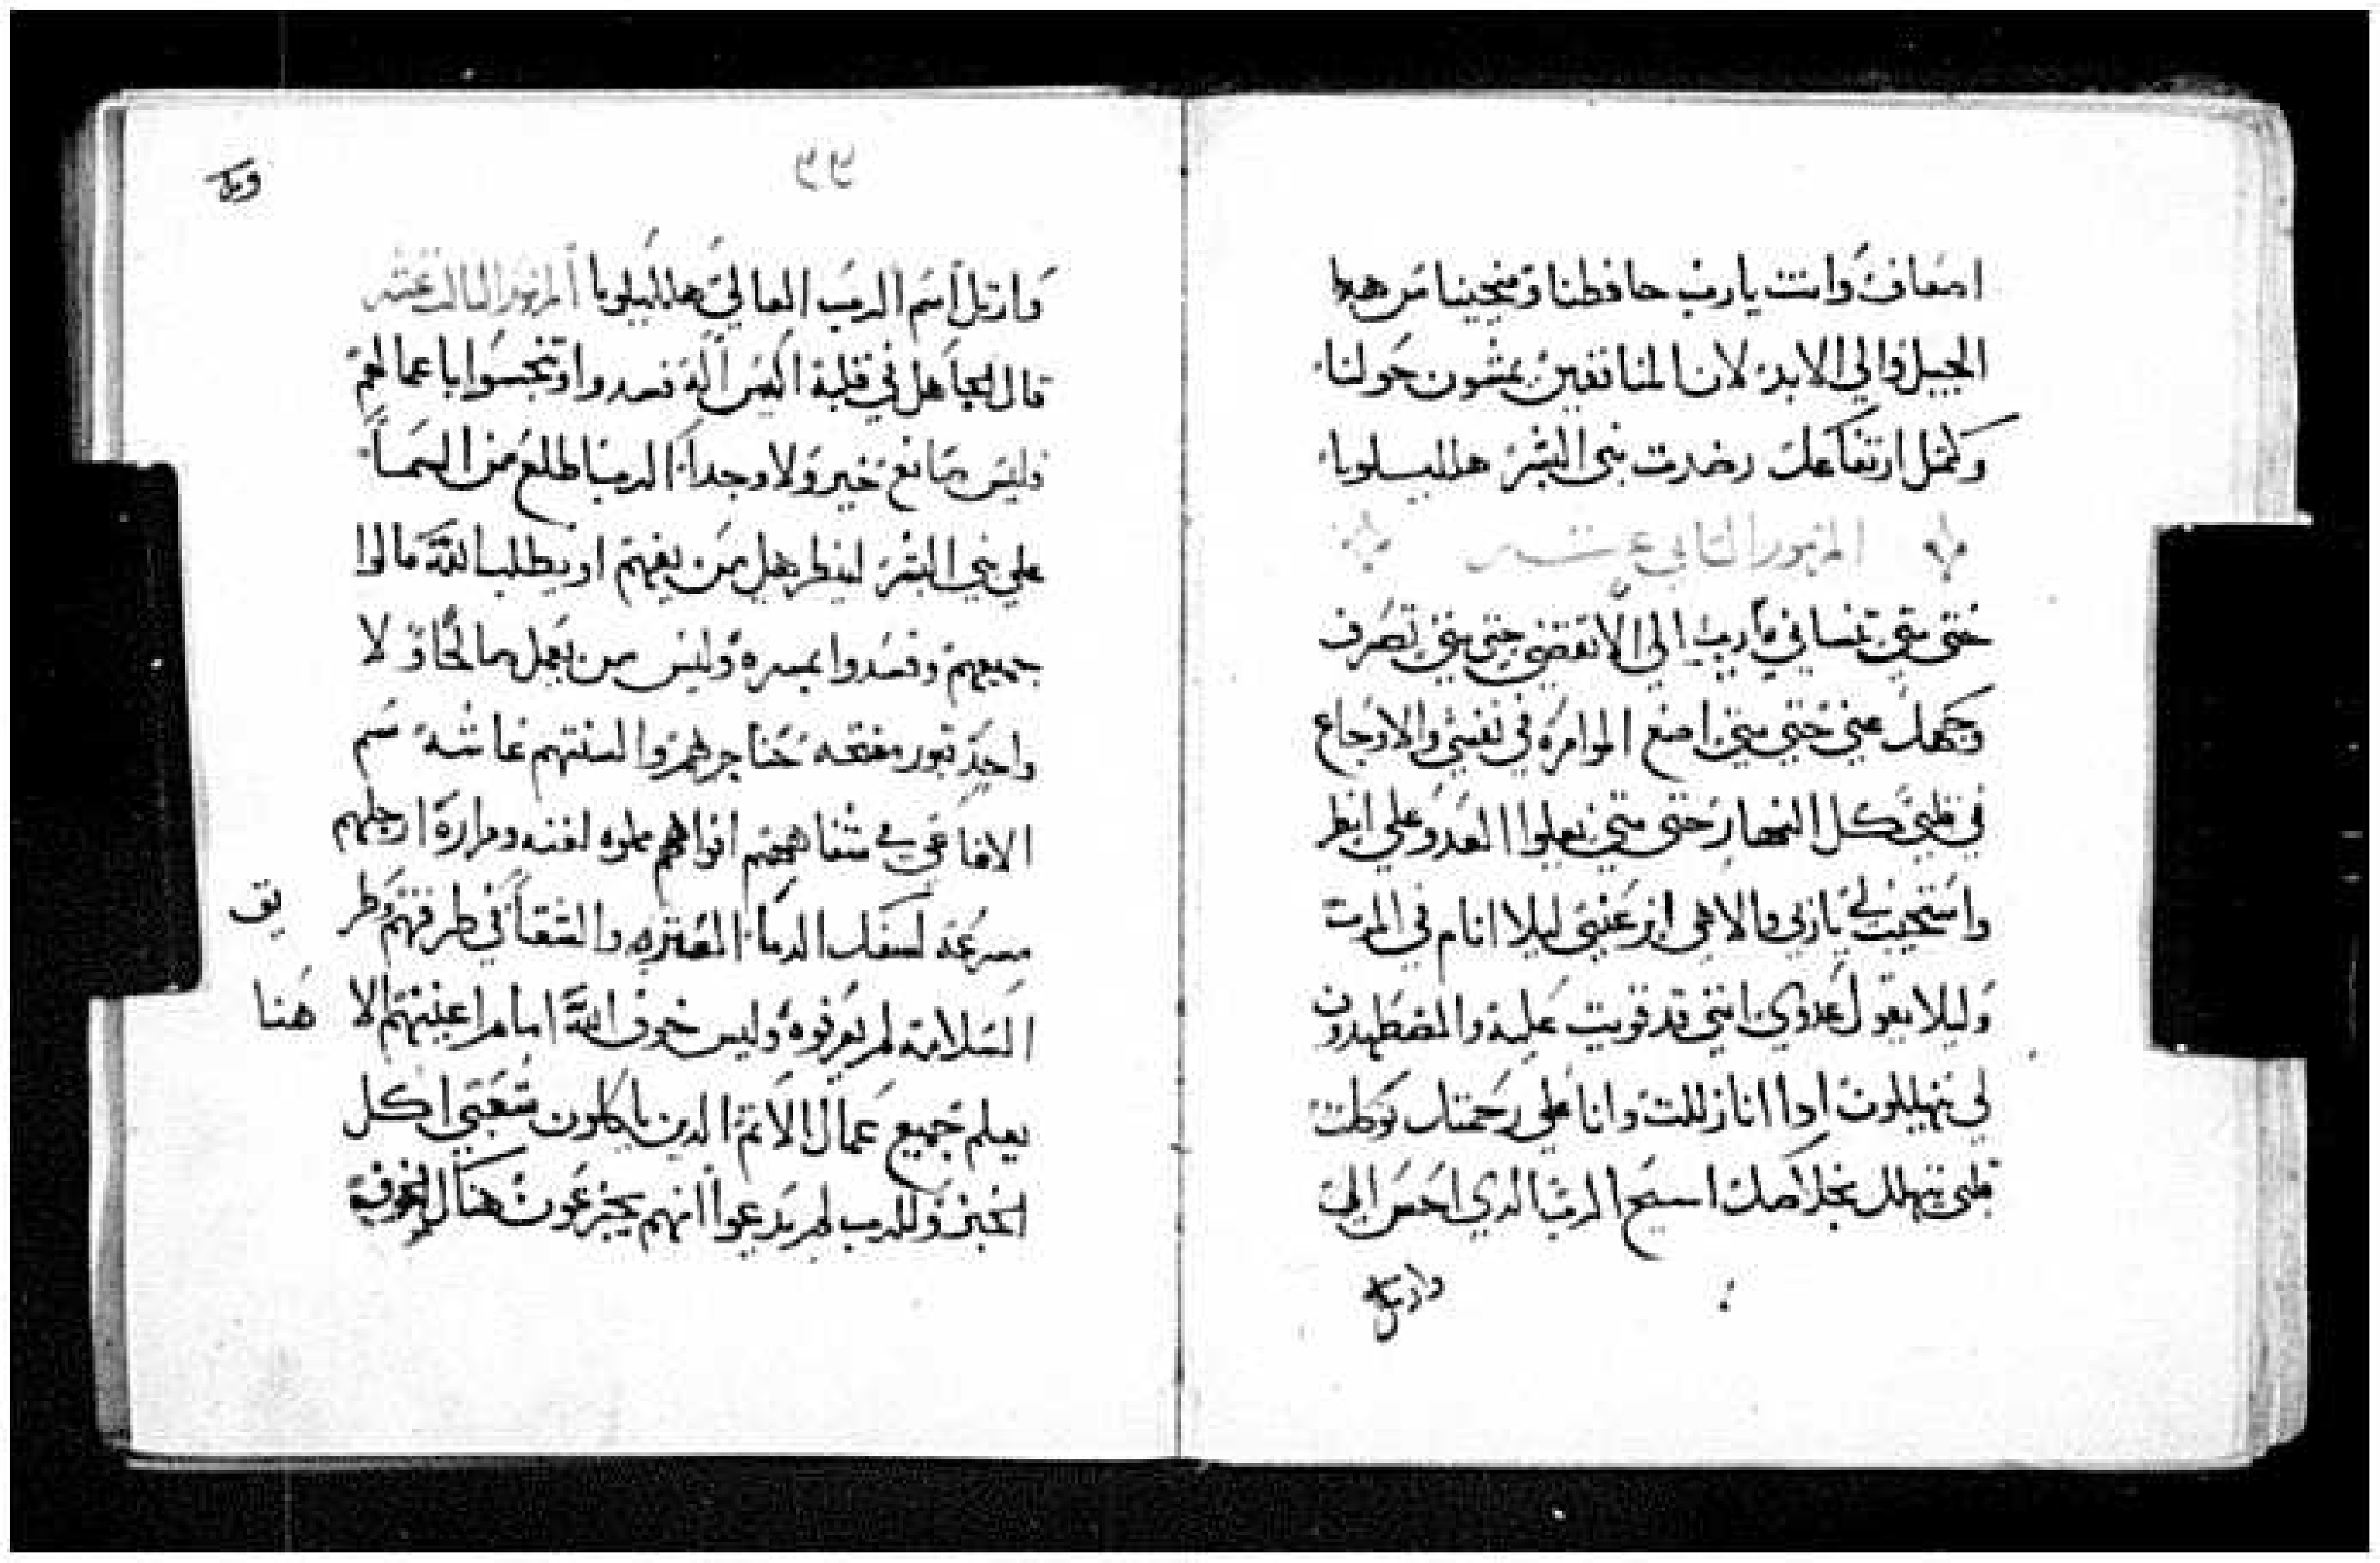 اضعاف وانت يارب حافظنا ومنجينا من هدا
الجيل والي الابد لان المنافقين يمشون حولنا
وكمثل ارتفاعك رفدت بني البشر هلليلويا
المزمور الثاني عشر
حتي متي تنساني يارب الي الانقضي حتي متي تصرف
وجهك عني حتي متي اضع الموامره في نفسي والاوجاع
في قلبي كل النهار حتي متي يعلوا العدو علي انظر
واستجيب لي ياربي والاهي انر عيني ليلا انام في الموت
وليلا يقول عدوي انني قد قويت عليه والمضطهدون
لي يتهللون ادا انا زللت وانا علي رحمتك توكلت
قلبي يتهلل بخلاصك اسبح الرب الدي احسن الي
وارتل
٣٣
وارتل اسم الرب العالي هلليلويا المزمور الثالث عشر
قال الجاهل في قلبه ليس اله فسدوا وتنجسوا باعمالهم
وليس صانع خير ولا وحدا الرب اطلع من السما
علي بني البشر لينظر هل من يفهم او يطلب الله مالوا
جميعهم وفسدوا بمسره وليس من يعمل صالحا ولا
واحد قبور مفتحه حناجرهم والسنتهم غاشه سم
الافاعي في شفاههم افواههم مملوه لعنه ومراره ارجلهم
مسرعه لسفك الدما العثره والشقا في طرقهم وطر
يق
السلامه لم يعرفوه وليس خوف الله امام اعينهم الا
هنا
يعلم جميع عمال الاثم الدين ياكلون شعبي اكل
الخبز وللرب لم يدعوا انهم يجزعون هناك الخوف